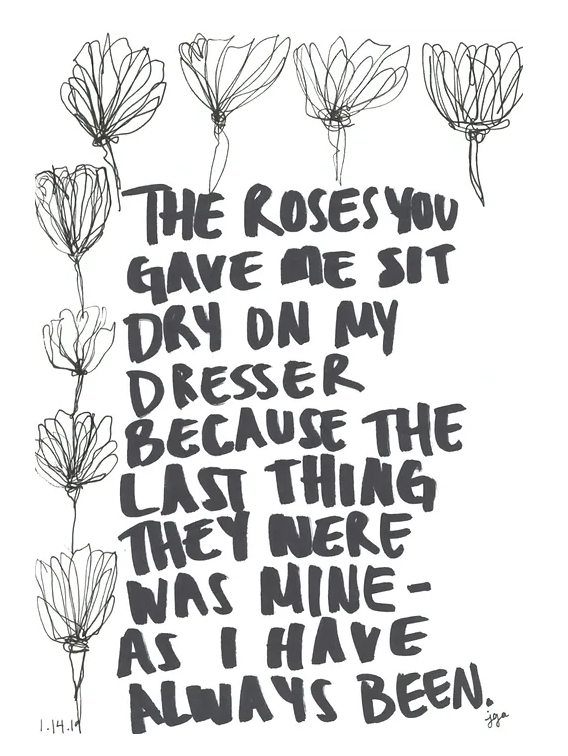 THE ROSES YOU
GAVE ME SIT
DRY ON MY
DRESSER
BECAUSE THE
LAST THING
THEY WERE
WAS MINE-
AS I HAVE
ALWAYS BEEN.
1.14.19
jga